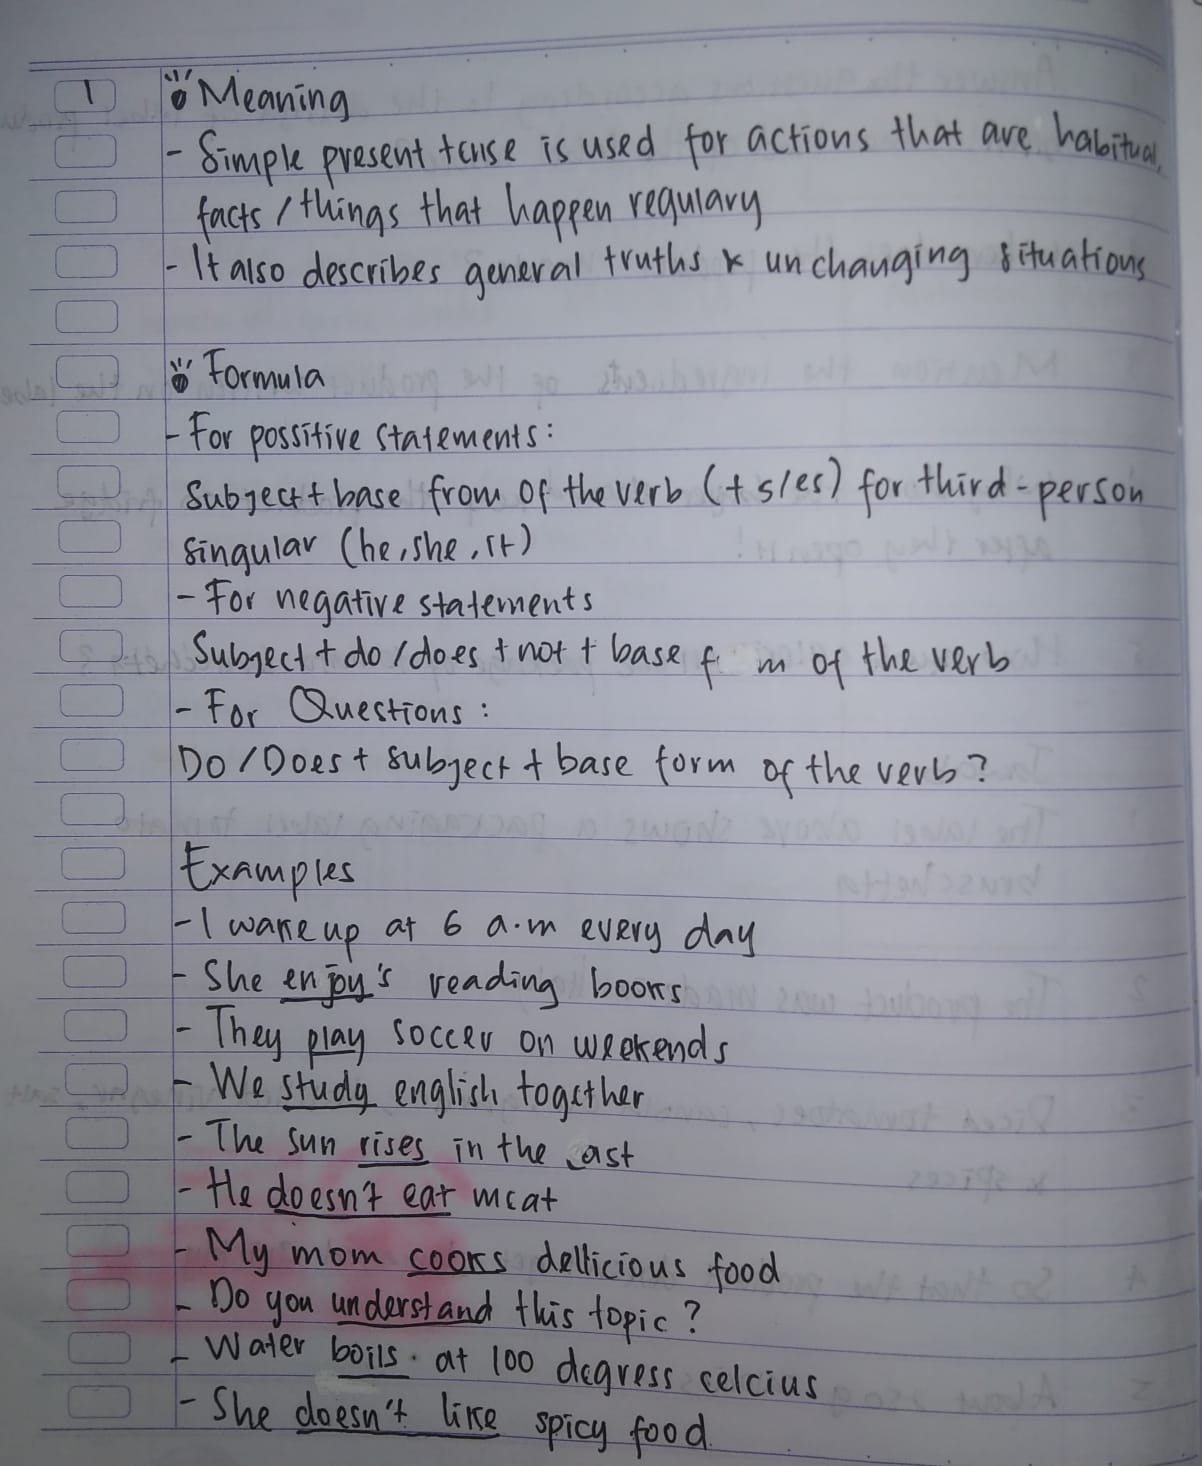 1 Meaning
- Simple present tense is used for actions that are habitual,
facts / things that happen regulary
- It also describes general truths & unchanging situations
Formula
- For possitive statements:
Subject + base from of the verb (+ s/es) for third-person
singular (he, she, it)
- For negative statements
Subject + do / does + not + base f m of the verb
- For Questions :
Do / Does + subject + base form of the verb ?
Examples
- I wake up at 6 a.m every day
- She enjoy's reading books
- They play soccer on weekends
- We study english together
- The sun rises in the east
- He doesn't eat meat
- My mom cooks dellicious food
- Do you understand this topic ?
- Water boils . at 100 degress celcius
- She doesn't like spicy food.